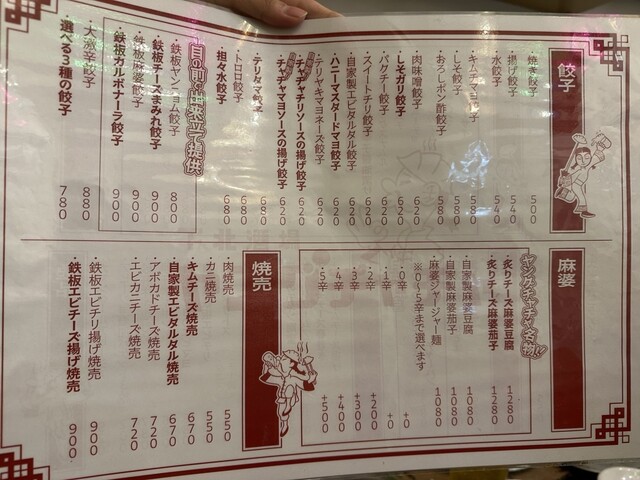 餃子
焼き餃子 500
揚げ餃子 540
水餃子 540
キムチマヨ餃子 580
しそ餃子 580
おろしポン酢餃子 580
肉味噌餃子 620
しそガリ餃子 620
パクチー餃子 620
スイートチリ餃子 620
自家製エビタルタル餃子 620
ハニーマスタードマヨ餃子 620
テリヤキマヨネーズ餃子 620
チャチャマヨソースの揚げ餃子 620
チャチャチリソースの揚げ餃子 620
テリタマ餃子 680
トロロ餃子 680
担々水餃子 680
目の前で出来立て提供
鉄板ヤンニョム餃子 800
鉄板チーズまみれ餃子 900
鉄板麻婆餃子 900
鉄板カルボナーラ餃子 900
大激辛餃子 880
選べる3種の餃子 780
麻婆
ヤングチャチャ名物!!
炙りチーズ麻婆豆腐 1280
炙りチーズ麻婆茄子 1280
自家製麻婆豆腐 1080
自家製麻婆茄子 1080
麻婆ジャージャー麺 1080
※0~5辛まで選べます
・0辛 +0
・1辛 +0
・2辛 +200
・3辛 +300
・4辛 +400
・5辛 +500
焼売
肉焼売 550
カニ焼売 550
キムチーズ焼売 670
自家製エビタルタル焼売 670
アボカドチーズ焼売 720
エビカニチーズ焼売 720
鉄板エビチリ揚げ焼売 900
鉄板エビチーズ揚げ焼売 900